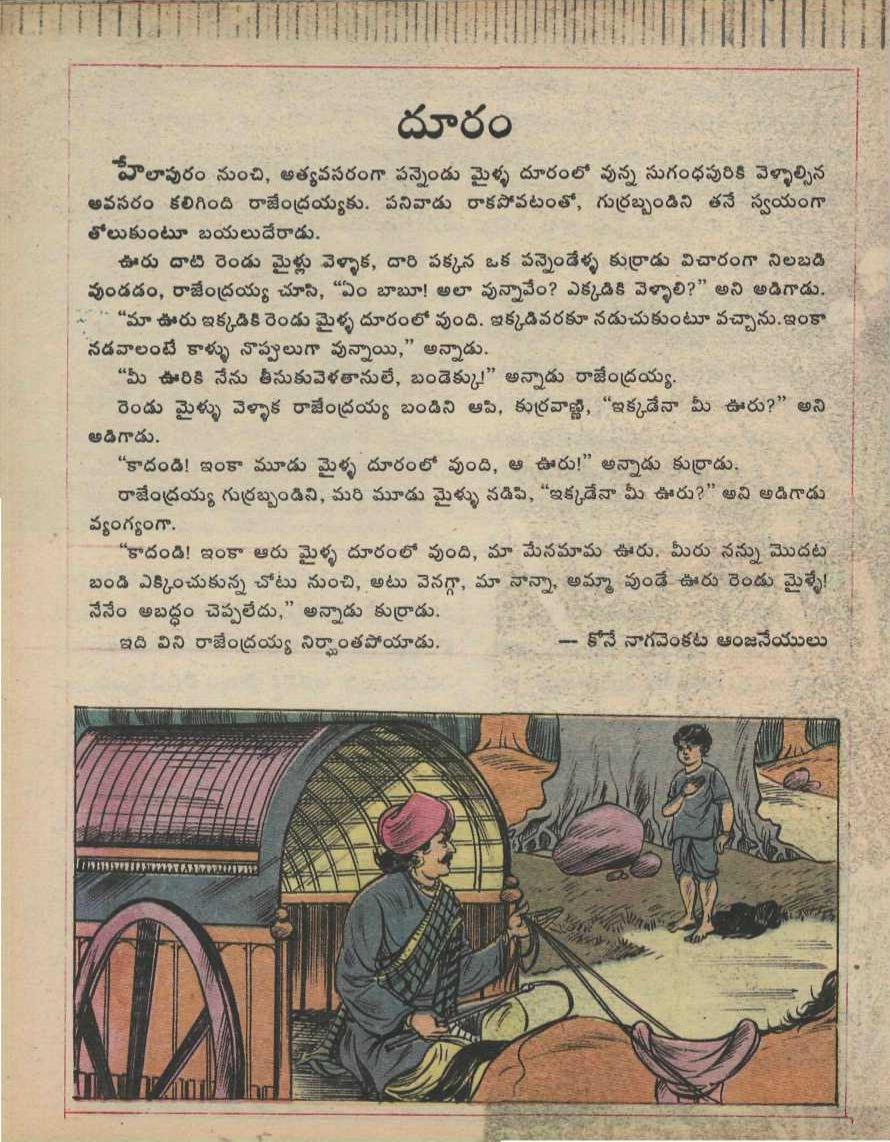 దూరం
హేలాపురం నుంచి, అత్యవసరంగా పన్నెండు మైళ్ళ దూరంలో వున్న సుగంధపురికి వెళ్ళాల్సిన
అవసరం కలిగింది రాజేంద్రయ్యకు. పనివాడు రాకపోవటంతో, గుర్రబ్బండిని తనే స్వయంగా
తోలుకుంటూ బయలుదేరాడు.
ఊరు దాటి రెండు మైళ్లు వెళ్ళాక, దారి పక్కన ఒక పన్నెండేళ్ళ కుర్రాడు విచారంగా నిలబడి
వుండడం, రాజేంద్రయ్య చూసి, “ఏం బాబూ! అలా వున్నావేం? ఎక్కడికి వెళ్ళాలి?” అని అడిగాడు.
“మా ఊరు ఇక్కడికి రెండు మైళ్ళ దూరంలో వుంది. ఇక్కడివరకూ నడుచుకుంటూ వచ్చాను.ఇంకా
నడవాలంటే కాళ్ళు నొప్పులుగా వున్నాయి,” అన్నాడు.
“మీ ఊరికి నేను తీసుకువెళతానులే, బండెక్కు!” అన్నాడు రాజేంద్రయ్య.
రెండు మైళ్ళు వెళ్ళాక రాజేంద్రయ్య బండిని ఆపి, కుర్రవాణ్ణి, “ఇక్కడేనా మీ ఊరు?” అని
అడిగాడు.
“కాదండి! ఇంకా మూడు మైళ్ళ దూరంలో వుంది, ఆ ఊరు!” అన్నాడు కుర్రాడు.
రాజేంద్రయ్య గుర్రబ్బండిని, మరి మూడు మైళ్ళు నడిపి, “ఇక్కడేనా మీ ఊరు?” అని అడిగాడు
వ్యంగ్యంగా.
“కాదండి! ఇంకా ఆరు మైళ్ళ దూరంలో వుంది, మా మేనమామ ఊరు. మీరు నన్ను మొదట
బండి ఎక్కించుకున్న చోటు నుంచి, అటు వెనగ్గా, మా నాన్నా, అమ్మా వుండే ఊరు రెండు మైళ్ళే!
నేనేం అబద్ధం చెప్పలేదు,” అన్నాడు కుర్రాడు.
ఇది విని రాజేంద్రయ్య నిర్ఘాంతపోయాడు. — కోనే నాగవెంకట ఆంజనేయులు